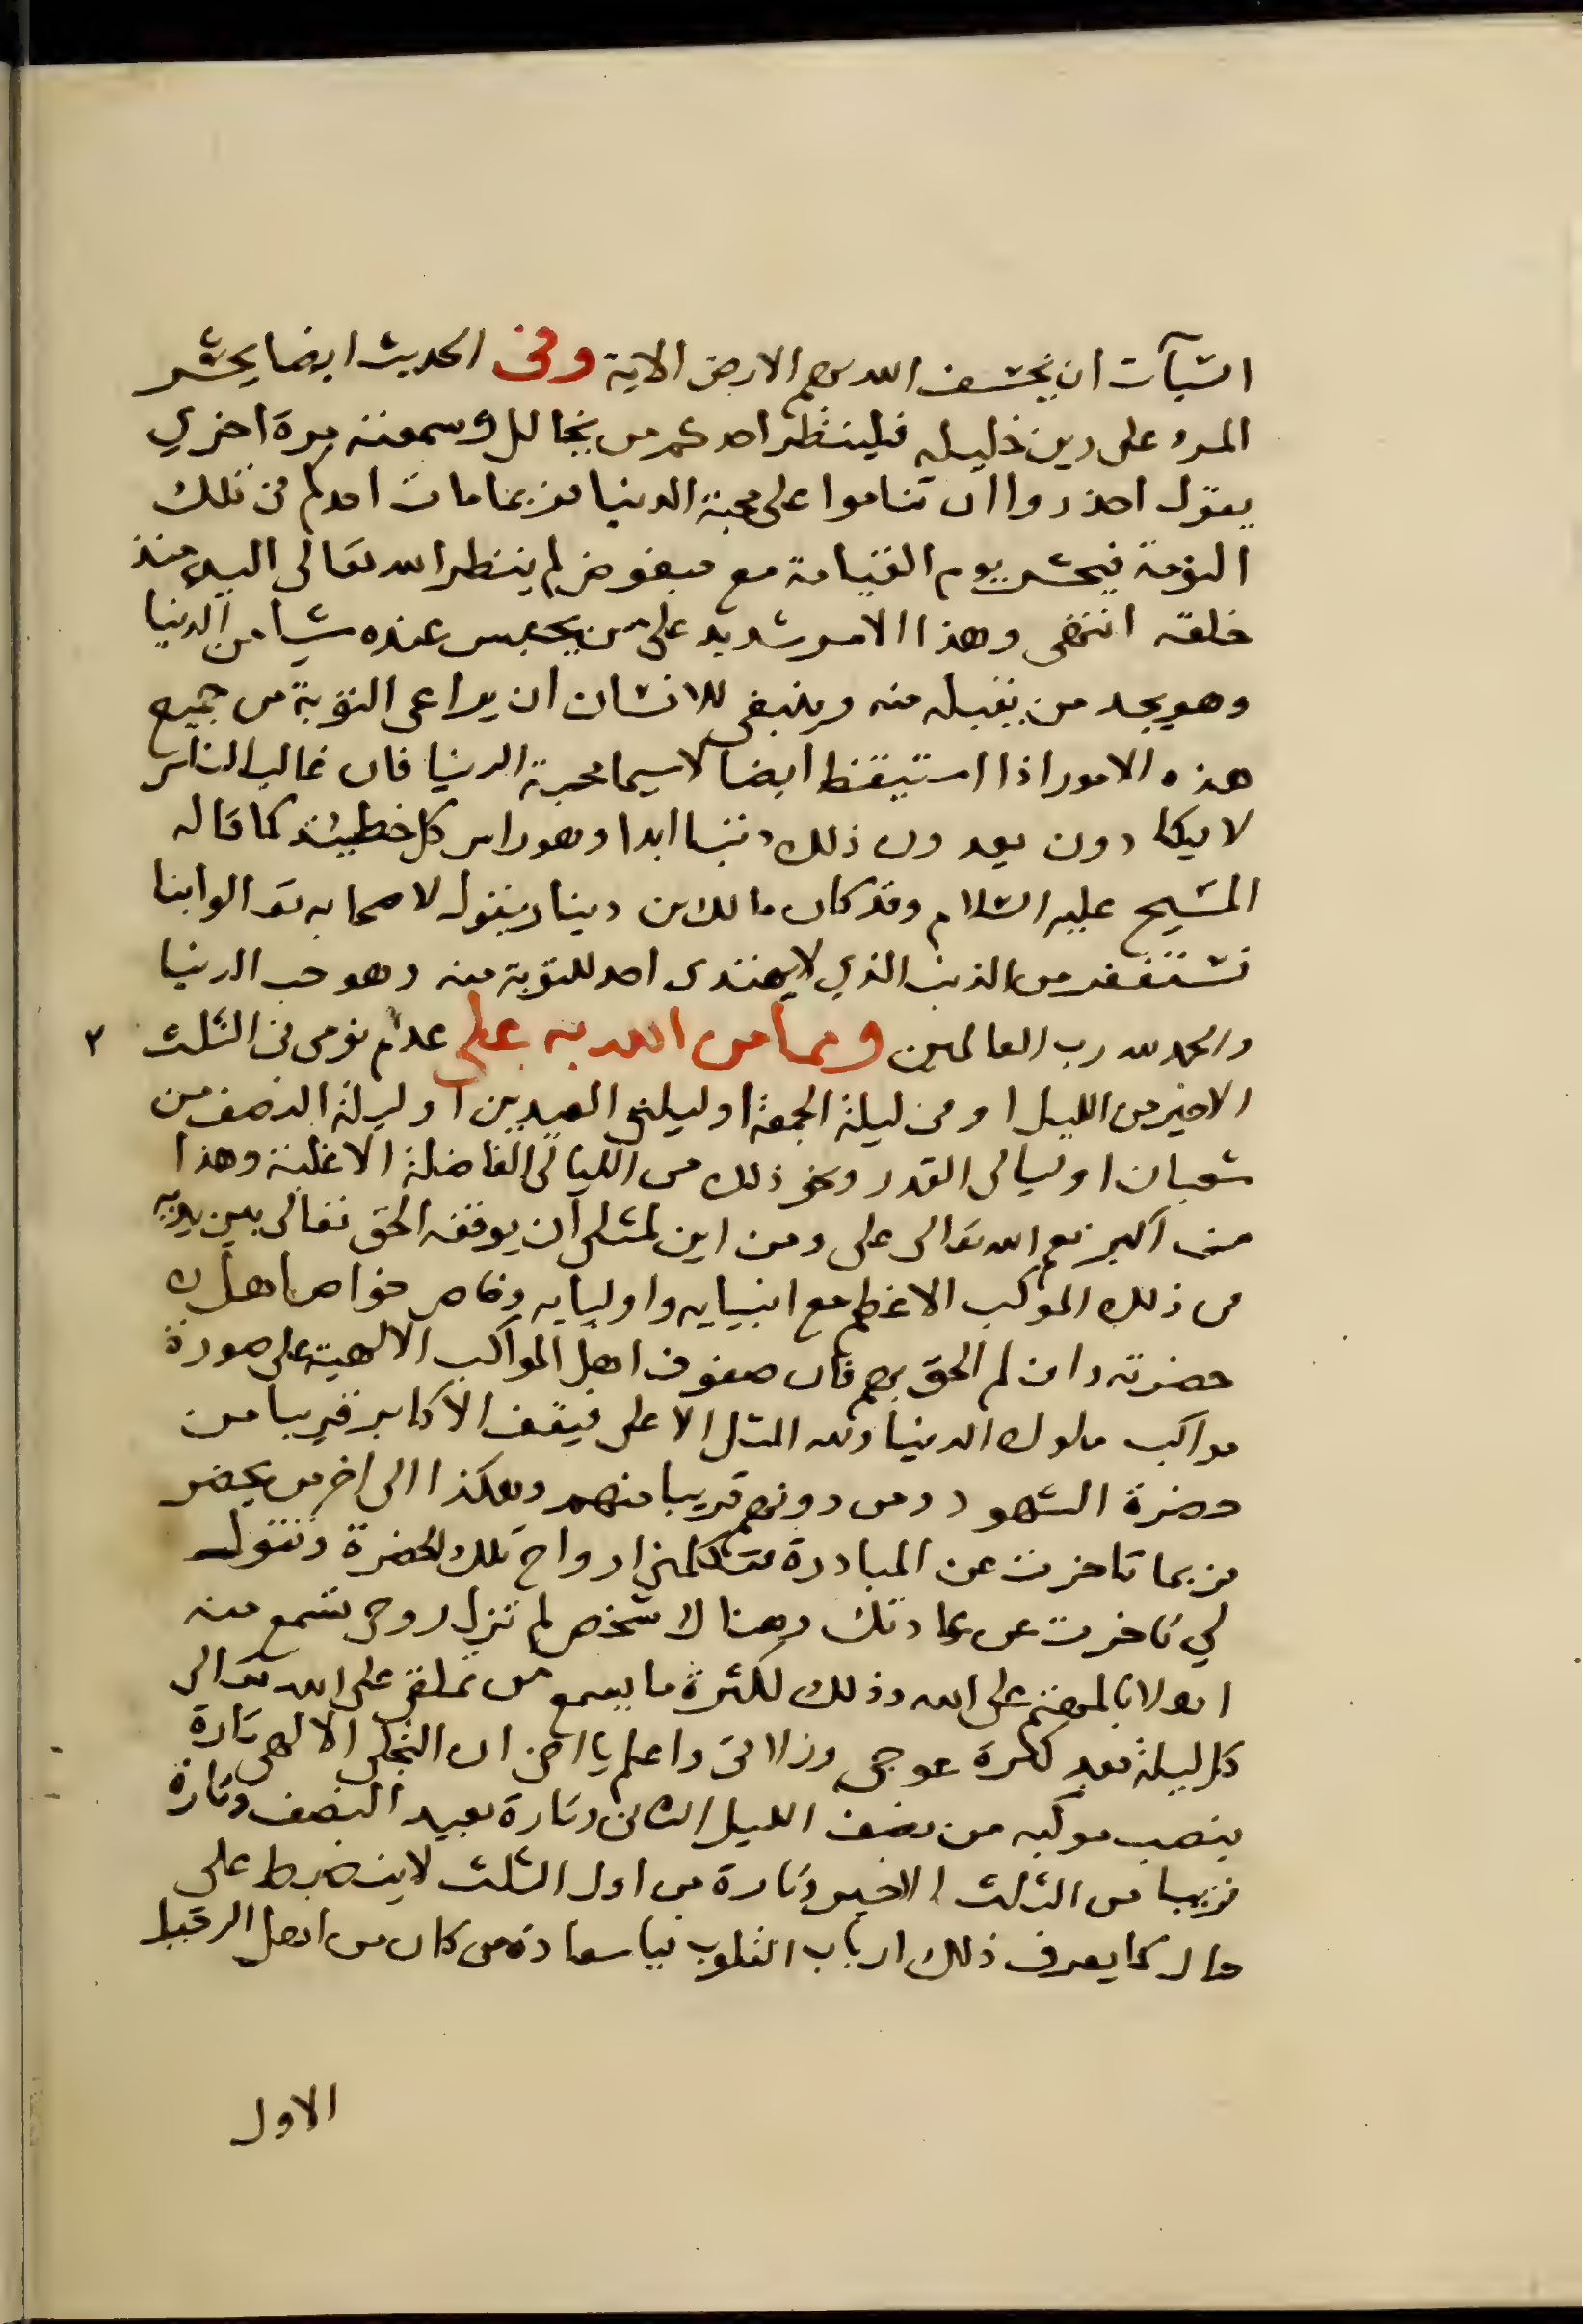 السيآت ان يخسف الله بهم الارض الاية وفي الحديث ايضا يحشر
المرء على دين خليله فلينظر احدكم من يخالل وسمعته مرة اخري
يقول احذروا ان تناموا على محبة الدنيا فربما مات احدكم في تلك
النومة فيحشر يوم القيامة مع مبغوض لم ينظر الله تعالى اليه منذ
خلقه انتهى وهذا الامر شديد على من يحبس عنده شيا من الدنيا
وهو يجد من يقبله منه وينبغي للانسان ان يراعي التوبة من جميع
هذه الامور اذا استيقظ ايضا لاسيما محبة الدنيا فان غالب الناس
لا يكادون يعدون ذلك ذنبا ابدا وهو راس كل خطيئة كما قاله
المسيح عليه السلام وقد كان مالك بن دينار يقول لاصحابه تعالوا بنا
نستغفر من الذنب الذي لا يهتدى احد للتوبة منه وهو حب الدنيا
والحمد لله رب العالمين ومما من الله به على عدم نومى في الثلث ٢
الاخير من الليل او في ليلة الجمعة او ليلتي العيدين او ليلة النصف من
شعبان او ليالى القدر ونحو ذلك من الليالى الفاضلة الا غلبة وهذا
من اكبر نعم الله تعالى على ومن اين لمثلى ان يوقفه الحق تعالى بين يديه
في ذلك الموكب الاعظم مع انبيايه واوليايه وخاص خواص اهل
حضرته وان لم الحق بهم فان صفوف اهل المواكب الالهية على صورة
مواكب ملوك الدنيا ولله المثل الاعلى فيقف الاكابر قريبا من
حضرة الشهود ومن دونهم قريبا منهم وهكذا الى اخر من يحضر
فربما تاخرت عن المبادرة فتكلمني ارواح تلك الحضرة وتقول
لي تاخرت عن عادتك وهنا لا شخص لم تزل روحي تسمع منه
اهلا بالمهتم على الله وذلك لكثرة ما يسمع من تملقي على الله تعالى
كل ليلة مع كثرة عوجي وزلاتى واعلم يا اخى ان التجلى الالهى تارة
ينصب موكبه من نصف الليل الثانى وتارة بعيد النصف وتارة
قريبا من الثلث الاخير وتارة من اول الثلث لا ينضبط على
حال كما يعرف ذلك ارباب القلوب فيا سعادة من كان من اهل الرعيل
الاول